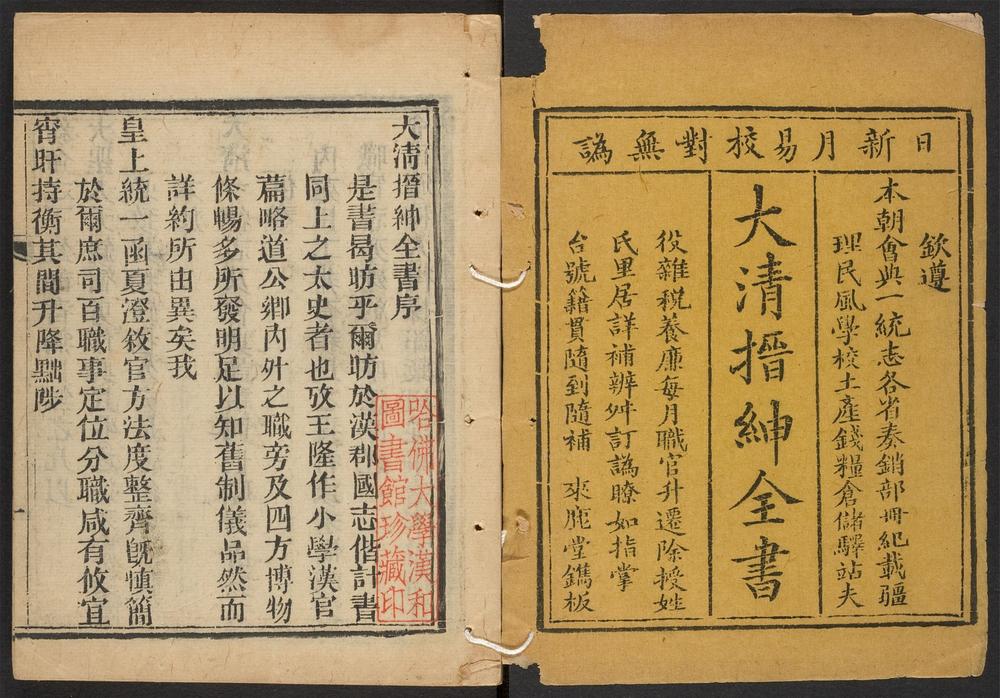 日新月易校對無譌
欽遵
本朝會典一統志各省奏銷部冊紀載疆
理民風學校土產錢糧倉儲驛站夫
大清搢紳全書
役雜稅養廉每月職官升遷除授姓
氏里居詳補辨舛訂譌瞭如指掌
台號籍貫隨到隨補 來鹿堂鐫板
大清搢紳全書序
是書曷昉乎爾昉於漢郡國志偕計書
同上之太史者也攷王隆作小學漢官
篇略道公卿內外之職旁及四方博物
條暢多所發明足以知舊制儀品然而
詳約所由異矣我
皇上統一函夏澄敘官方法度整齊旣愼簡
於爾庶司百職事定位分職咸有攸宜
宵旰持衡其間升降黜陟
哈佛大學漢和
圖書館珍藏印